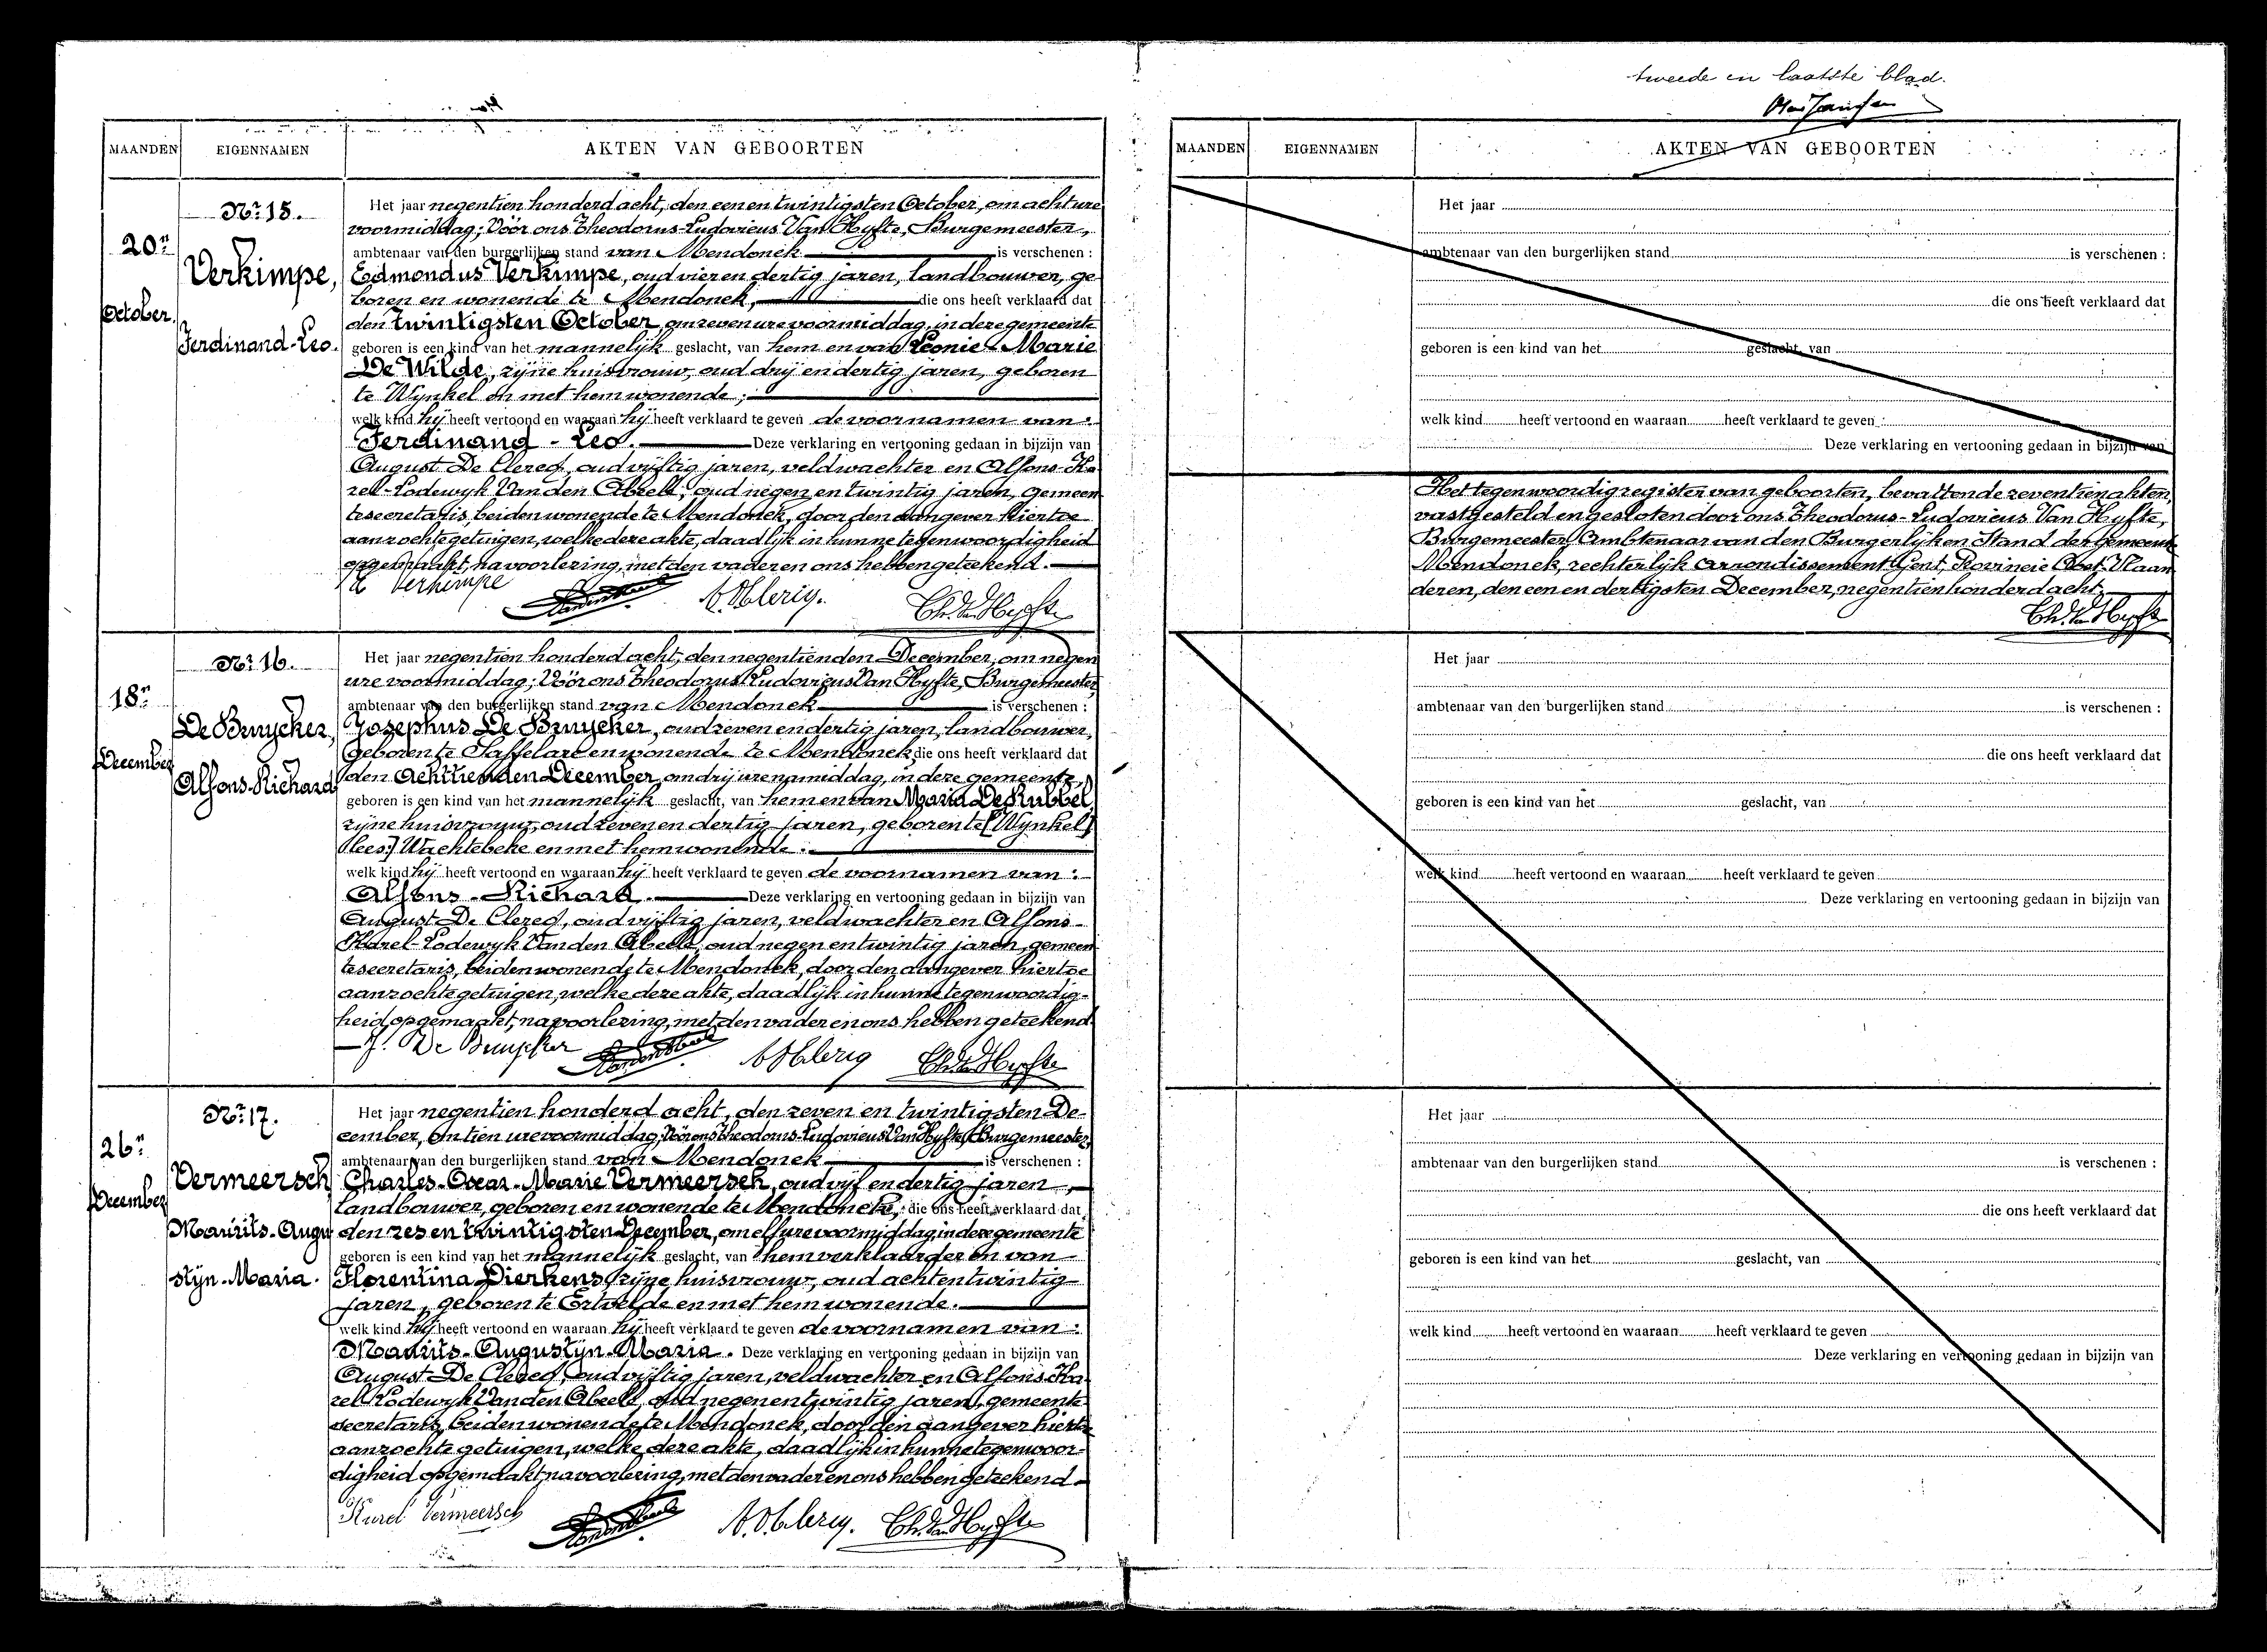 MAANDEN EIGENNAMEN AKTEN VAN GEBOORTEN
Nr. 15.
20n
October.
Verkimpe,
Ferdinand-Leo.
Het jaar negentien honderd acht, den een en twintigsten October, om acht ure
voormiddag; Vóór ons Theodorus-Ludovicus Van Hyfte, Burgemeester,
ambtenaar van den burgerlijken stand van Mendonck is verschenen :
Edmondus Verkimpe, oud vier en dertig jaren, landbouwer, ge-
boren en wonende te Mendonck, die ons heeft verklaard dat
den twintigsten October, om zeven ure voormiddag, in deze gemeente
geboren is een kind van het mannelijk geslacht, van hem en van Leonie-Marie
De Wilde, zijne huisvrouw, oud drij en dertig jaren, geboren
te Wynkel en met hem wonende ;
welk kind hij heeft vertoond en waaraan hij heeft verklaard te geven de voornamen van :
Ferdinand - Leo. Deze verklaring en vertooning gedaan in bijzijn van
August De Clercq, oud vijftig jaren, veldwachter en Alfons-Ka-
rel-Lodewyk Van den Abeele, oud negen en twintig jaren, gemeen-
tesecretaris, beiden wonende te Mendonck, door den aangever hiertoe
aanzochte getuigen, welke deze akte, daadlijk in hunne tegenwoordigheid
opgemaakt, na voorlezing, met den vader en ons hebben geteekend.
Verkimpe Vandenabeele A. D. Clercq. Th. Van Hyfte
Nr. 16.
18n
December
De Bruycker,
Alfons-Richard
Het jaar negentien honderd acht, den negentienden December, om negen
ure voormiddag; Vóór ons Theodorus Ludovicus Van Hyfte, Burgemeester,
ambtenaar van den burgerlijken stand van Mendonck is verschenen :
Josephus De Bruycker, oud zeven en dertig jaren, landbouwer,
geboren te Saffelare en wonende te Mendonck die ons heeft verklaard dat
den Achttienden December, om drij ure namiddag, in deze gemeente,
geboren is een kind van het mannelijk geslacht, van hem en van Maria De Rubbel,
zijne huisvrouw, oud zeven en dertig jaren, geboren te [Wynkel]
[lees:] Wachtebeke en met hem wonende :
welk kind hij heeft vertoond en waaraan hij heeft verklaard te geven de voornamen van :
Alfons - Richard. Deze verklaring en vertooning gedaan in bijzijn van
August De Clercq, oud vijftig jaren, veldwachter en Alfons-
Karel-Lodewyk Van den Abeele, oud negen en twintig jaren, gemeen-
tesecretaris, beiden wonende te Mendonck, door den aangever hiertoe
aanzochte getuigen, welke deze akte, daadlijk in hunne tegenwoordig-
heid opgemaakt, na voorlezing, met den vader en ons hebben geteekend.
J. De Bruycker Vandenabeele A. D. Clercq Th. Van Hyfte
Nr. 17.
26n
December
Vermeersch
Maurits-Augu
stijn-Maria.
Het jaar negentien honderd acht, den zeven en twintigsten De-
cember, om tien ure voormiddag; Vóór ons Theodorus-Ludovicus Van Hyfte, Burgemeester,
ambtenaar van den burgerlijken stand van Mendonck is verschenen :
Charles-Oscar-Marie Vermeersch, oud vijf en dertig jaren,
landbouwer, geboren en wonende te Mendonck, die ons heeft verklaard dat
den zes en twintigsten December, om elf ure voormiddag, in deze gemeente
geboren is een kind van het mannelijk geslacht, van hem verklaarder en van
Florentina Dierkens, zijne huisvrouw, oud acht en twintig
jaren, geboren te Ertvelde en met hem wonende.
welk kind hij heeft vertoond en waaraan hij heeft verklaard te geven de voornamen van :
Maurits-Augustijn-Maria. Deze verklaring en vertooning gedaan in bijzijn van
August De Clercq, oud vijftig jaren, veldwachter en Alfons Ka-
rel Lodewyk Van den Abeele, oud negen en twintig jaren, gemeente-
secretaris, beiden wonende te Mendonck, door den aangever hiertoe
aanzochte getuigen, welke deze akte, daadlijk in hunne tegenwoor-
digheid opgemaakt, na voorlezing, met den vader en ons hebben geteekend.
Karel Vermeersch Vandenabeele A. D. Clercq. Th. Van Hyfte
tweede en laatste blad.
MAANDEN EIGENNAMEN AKTEN VAN GEBOORTEN
Het jaar
ambtenaar van den burgerlijken stand is verschenen :
die ons heeft verklaard dat
geboren is een kind van het geslacht, van
welk kind heeft vertoond en waaraan heeft verklaard te geven :
Deze verklaring en vertooning gedaan in bijzijn van
Het tegenwoordig register van geboorten, bevattende zeventien akten,
vastgesteld en gesloten door ons Theodorus-Ludovicus Van Hyfte,
Burgemeester, Ambtenaar van den Burgerlijken Stand der Gemeente
Mendonck, rechterlijk arrondissement Gent, Provincie Oost-Vlaan-
deren, den een en dertigsten December, negentien honderd acht.
Th. Van Hyfte
Het jaar
ambtenaar van den burgerlijken stand is verschenen :
die ons heeft verklaard dat
geboren is een kind van het geslacht, van
welk kind heeft vertoond en waaraan heeft verklaard te geven
Deze verklaring en vertooning gedaan in bijzijn van
Het jaar
ambtenaar van den burgerlijken stand is verschenen :
die ons heeft verklaard dat
geboren is een kind van het geslacht, van
welk kind heeft vertoond en waaraan heeft verklaard te geven
Deze verklaring en vertooning gedaan in bijzijn van